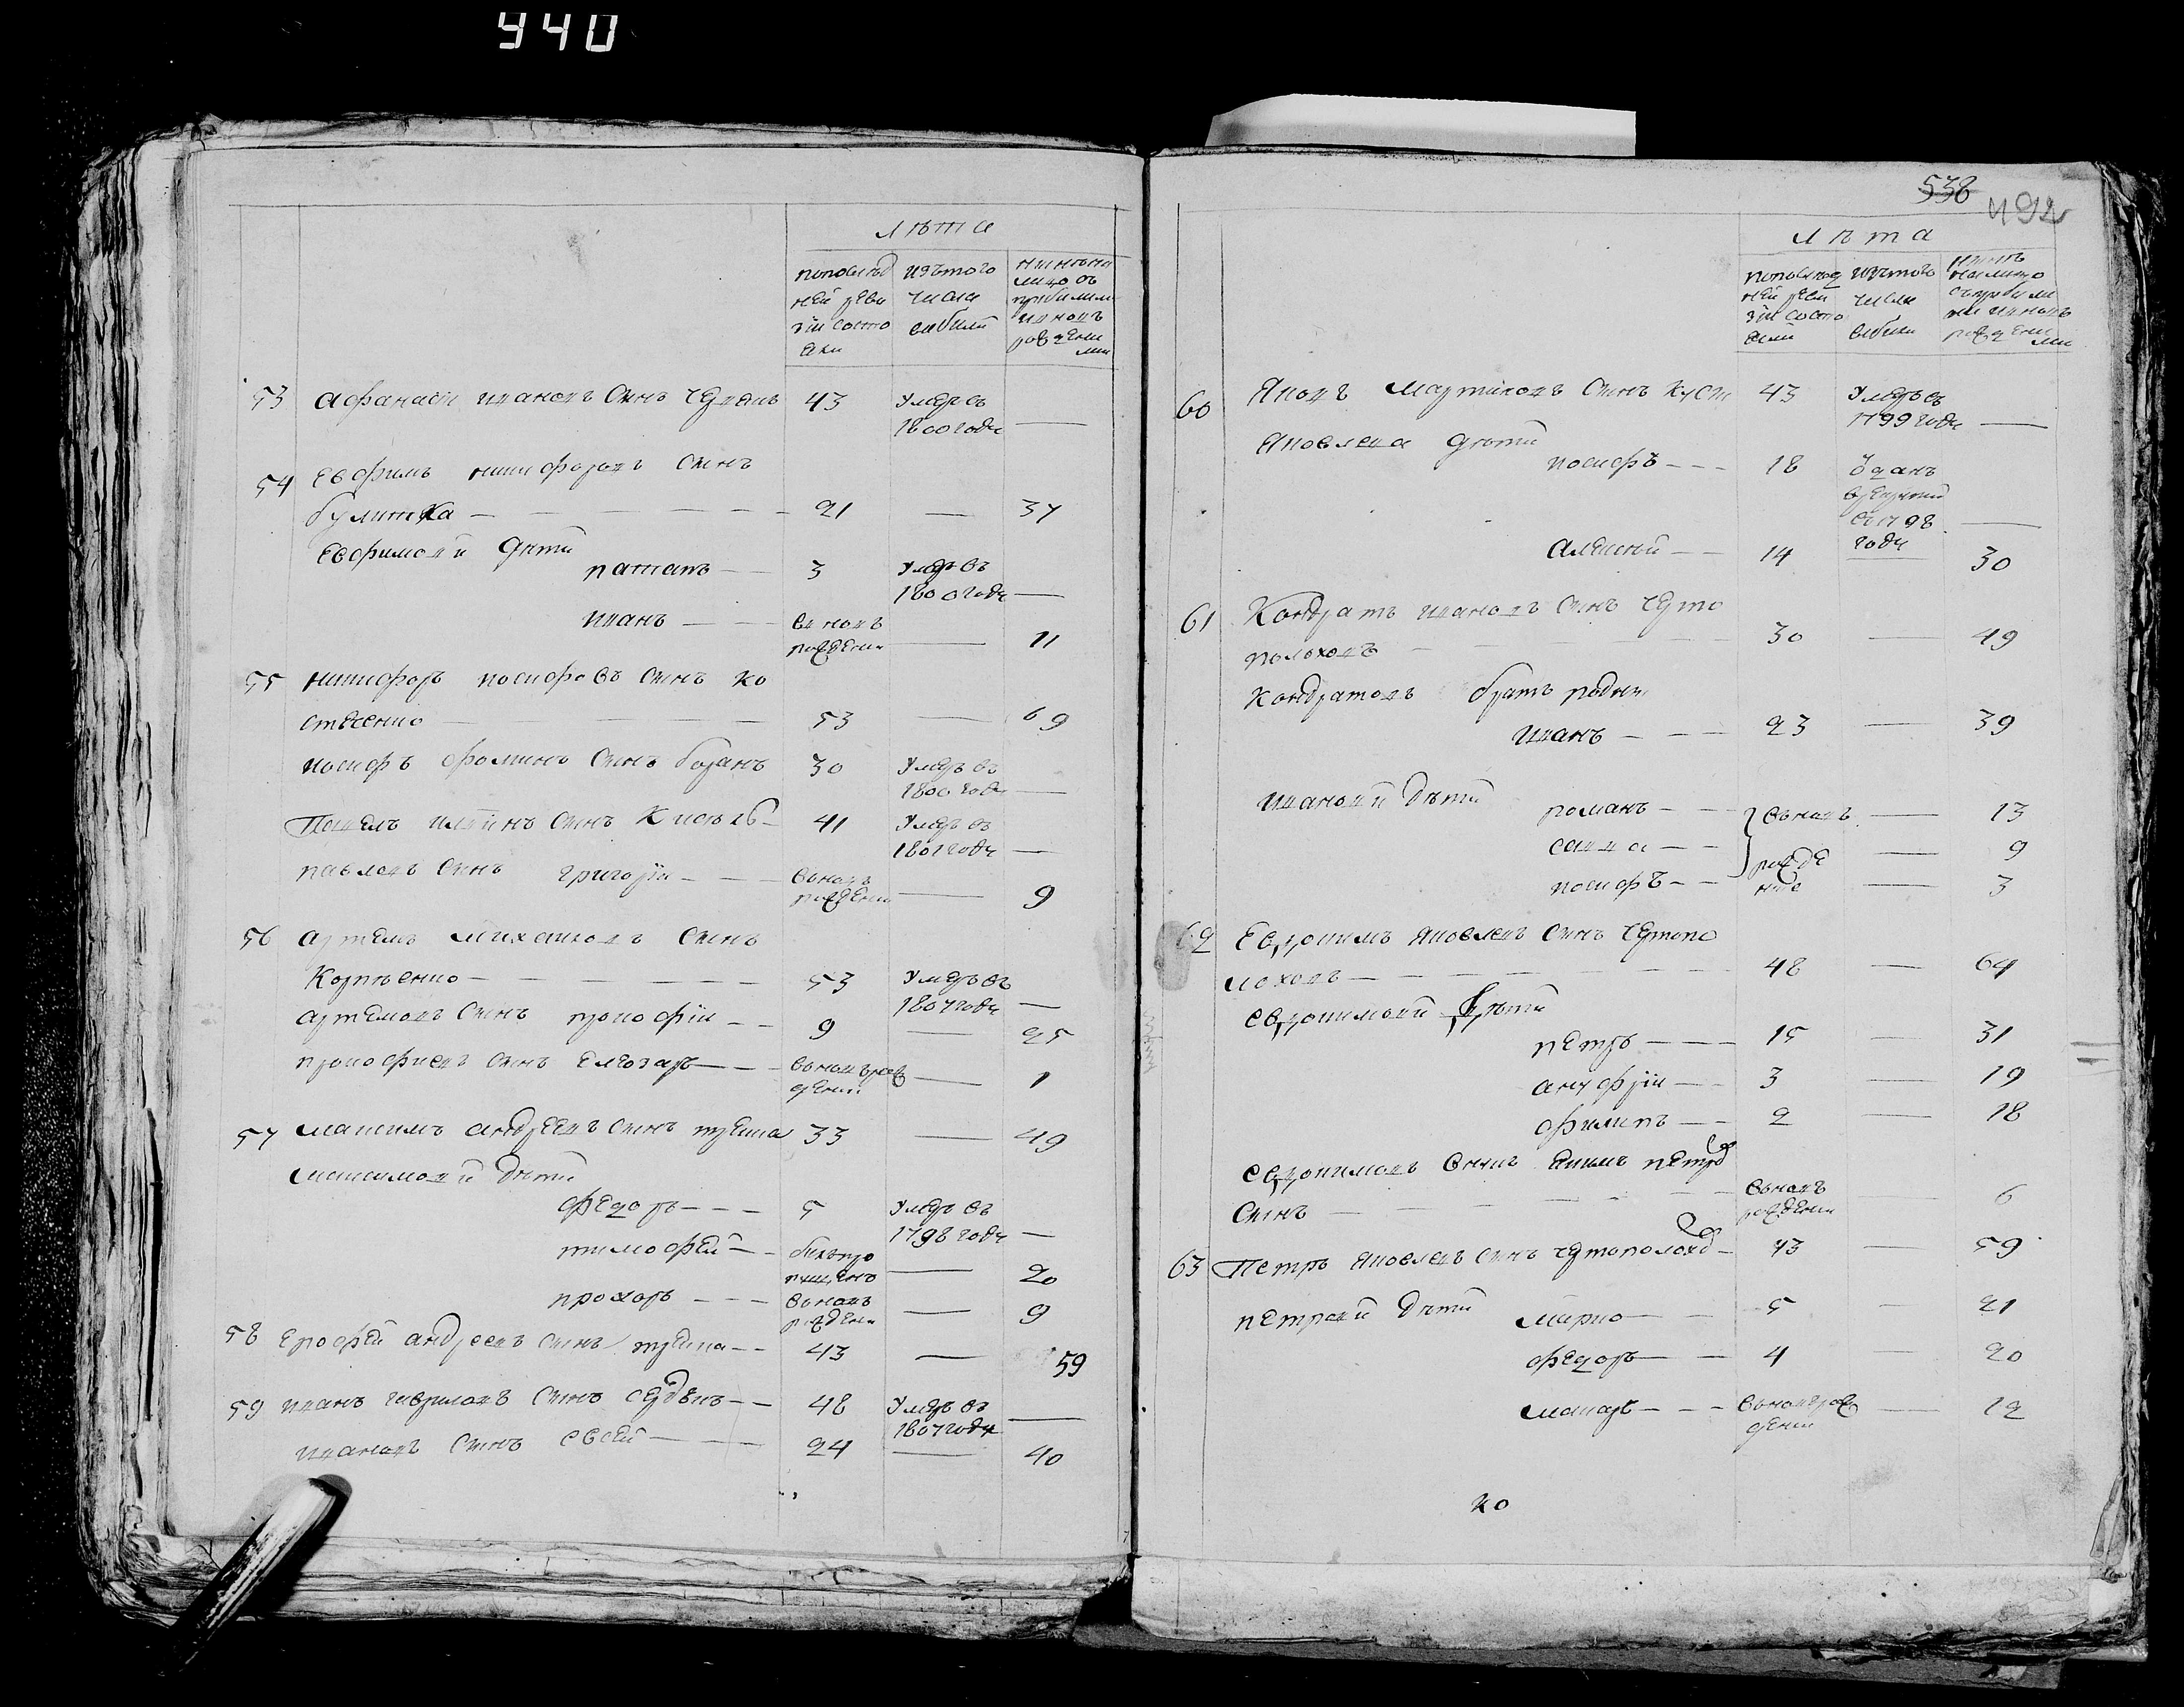 940
лѣта
попослѣд
ней реви
зіи состо
яли
изътого
числа
выбыли
ныне на
лицо съ
прибылы
и новъ
рожденны
ми
53 Афанаси ивановъ сынъ
43
умеръ въ
1800 годе —
54 Евфимъ никифоровъ сынъ
булитка — 21 — 37
Евфимовы дети
патапъ — 3 умеръ въ
1800 годе —
иванъ — вновь
рождени — 11
55 никифоръ иосифовъ сынъ ко
стѣенко — 53 — 69
иосифъ фоминъ сынъ боранъ 30 умеръ въ
1800 годе —
Павелъ сынъ 41 умеръ въ
1801 годе —
павловъ сынъ григорій — вновь
рождени — 9
56 артемъ михаиловъ сынъ
Корпѣенко — 53 умеръ въ
1807 годе —
артемовъ сынъ прокофій — 9 — 25
прокофиевъ сынъ Елеозаръ — вновь рож
дении — 1
57 максимъ андреевъ сынъ 33 — 49
максимовы дети
федоръ — 5 умеръ въ
1798 годе —
тимофей — былъ про
пущенъ — 20
прохоръ — вновь
рождени — 9
58 Ерофей андреевъ сынъ — 43 — 59
59 иванъ гавриловъ сынъ — 48 умеръ въ
1807 годе —
ивановъ сынъ евсей — 24 — 40
538
492
лѣта
попослѣд
ней реви
зіи состо
яли
изътого
числа
выбыли
нынѣ
налицо
съприбылы
ми и новъ
рождены
ми
60 Яковъ мартиновъ сынъ 43 умеръ въ
1799 годе —
Яковлева дѣти
иосифъ — 18 ѿданъ
врекруты
въ 1798 —
годе
алексей — 14 — 30
61 Кондратъ ивановъ сынъ черто
полоховъ — 30 — 49
кондратовъ братъ родны
иванъ — 23 — 39
ивановы дѣти романъ — 13
савва — 9
иосифъ — 3
вновь
рожде
ние
62 Евдокимъ яковлевъ сынъ чертопо
лоховъ — 48 — 64
евдокимовы дѣти
петръ — 15 — 31
ануфрій — 3 — 19
филипъ — 2 — 18
евдокимовъ внукъ екимъ петров
сынъ — вновь
рождени — 6
63 Петръ яковлевъ сынъ чертополохов — 43 — 59
петровы дѣти марко — 5 — 21
федоръ — 4 — 20
макаръ — вновь рож
дении — 12
ко